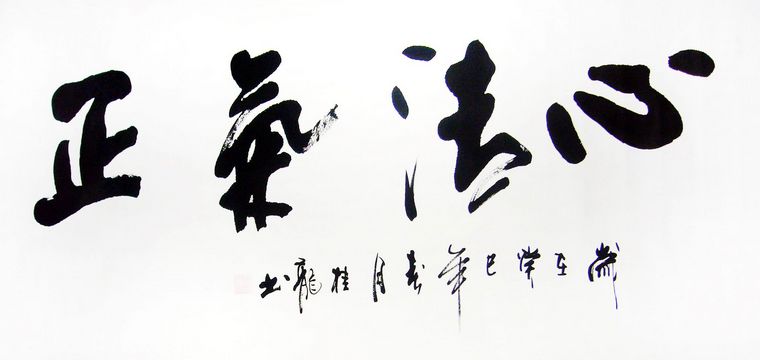 心法氣正
歲在癸巳年春月桂龍书